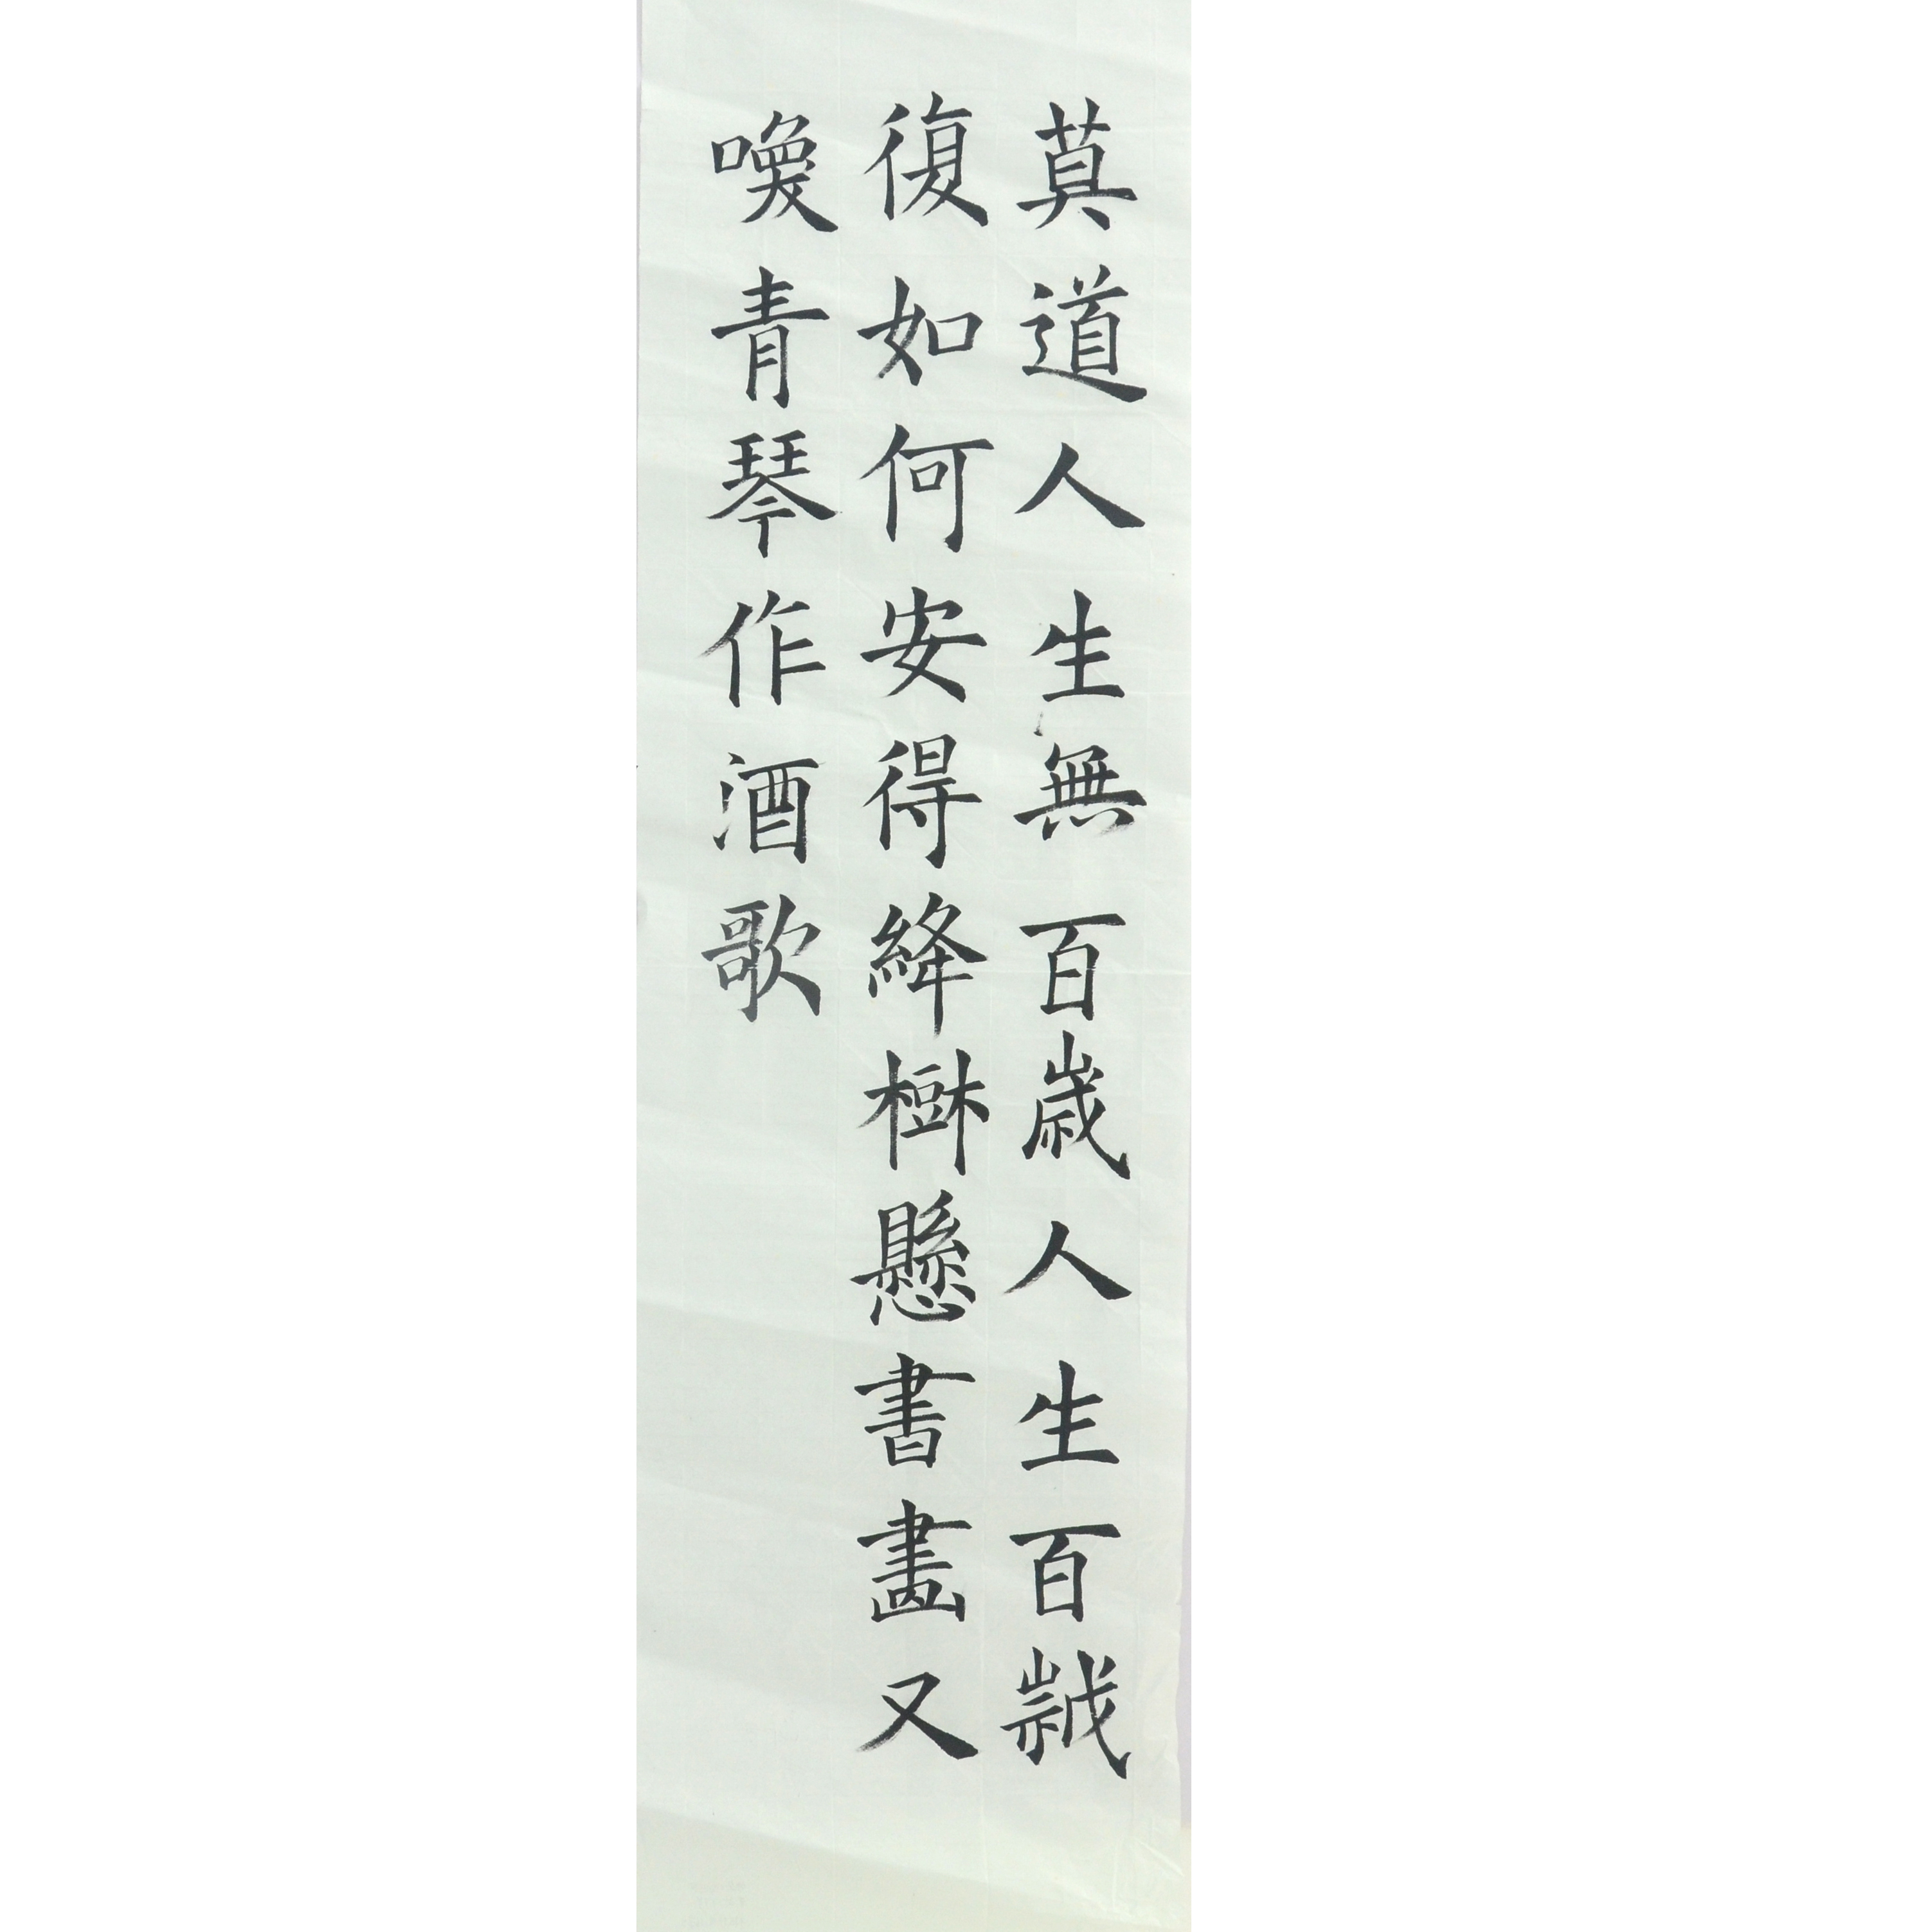 莫道人生無百歲人生百歲
復如何安得絳樹懸書畫又
喚青琴作酒歌